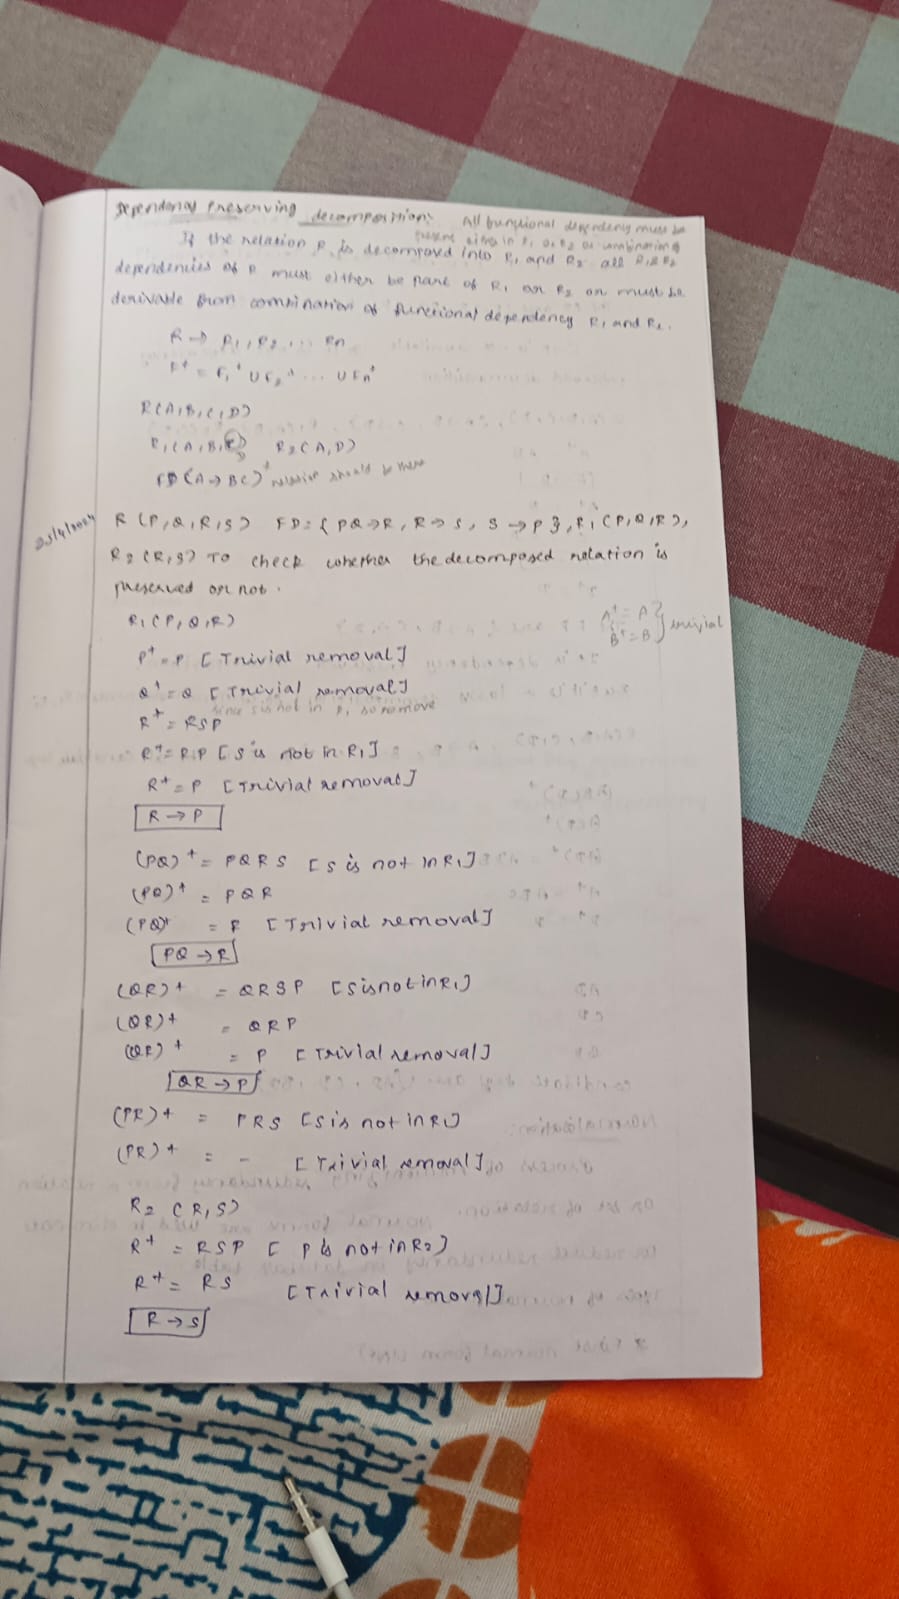 Dependency Preserving decomposition: All functional dependency must be
present either in R1 or R2 or combination of R1&R2
If the relation R is decomposed into R1 and R2 all
dependencies of R must either be part of R1 or R2 or must be
derivable from combination of functional dependency R1 and R2.
R → R1, R2 ... Rn
F+ = F1+ U F2+ ... U Fn+
R(A,B,C,D)
R1(A,B,C) R2(A,D)
FD(A→BC) relation should be there
25/4/2024
R (P,Q,R,S) FD={ PQ→R, R→S, S→P }, R1 (P,Q,R),
R2(R,S) To check whether the decomposed relation is
preserved or not.
R1(P,Q,R)
A+=A } trivial
B+=B
P+=P [Trivial removal]
Q+=Q [Trivial removal]
since S is not in R1 so remove
R+=RSP
R+=RP [S is not in R1]
R+=P [Trivial removal]
R→P
(PQ)+= PQRS [S is not in R1]
(PQ)+ = PQR
(PQ)+ = R [Trivial removal]
PQ→R
(QR)+ = QRSP [S is not in R1]
(QR)+ = QRP
(QR)+ = P [Trivial removal]
QR→P
(PR)+ = PRS [S is not in R1]
(PR)+ = - [Trivial removal]
R2 (R,S)
R+ = RSP [ P is not in R2]
R+ = RS [Trivial removal]
R→S